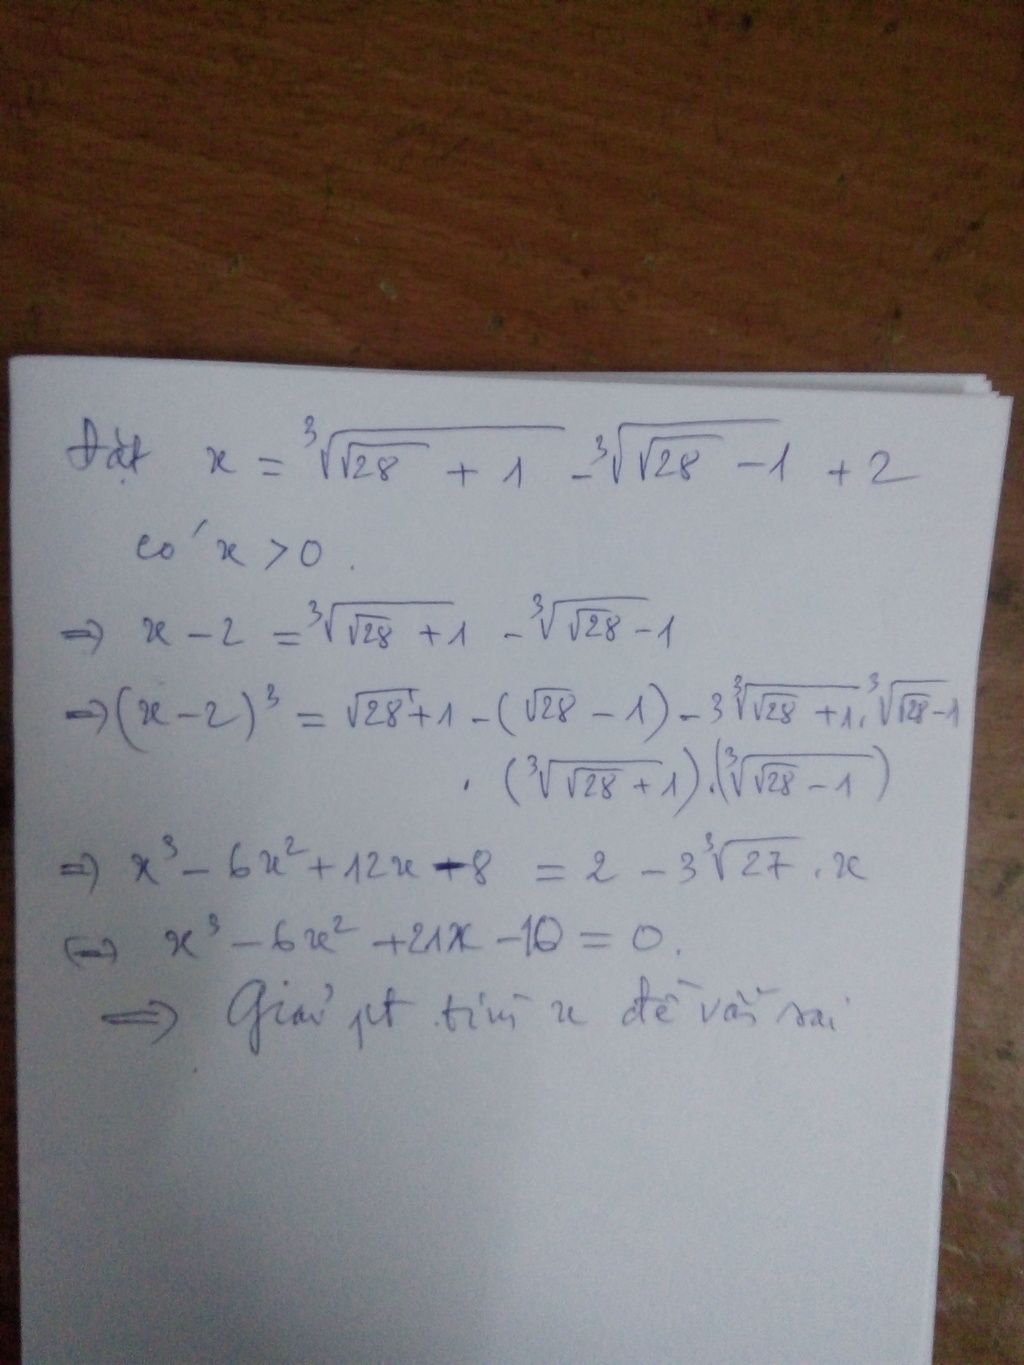 Đặt x = ∛(√28 + 1) - ∛(√28 - 1) + 2
có x > 0.
⇒ x - 2 = ∛(√28 + 1) - ∛(√28 - 1)
⇒ (x - 2)³ = √28 + 1 - (√28 - 1) - 3∛(√28 + 1) . ∛(√28 - 1)
. (∛(√28 + 1)) . (∛(√28 - 1))
⇒ x³ - 6x² + 12x - 8 = 2 - 3∛27 . x
⇔ x³ - 6x² + 21x - 10 = 0.
⇒ Giải pt tìm x đề vẫn sai